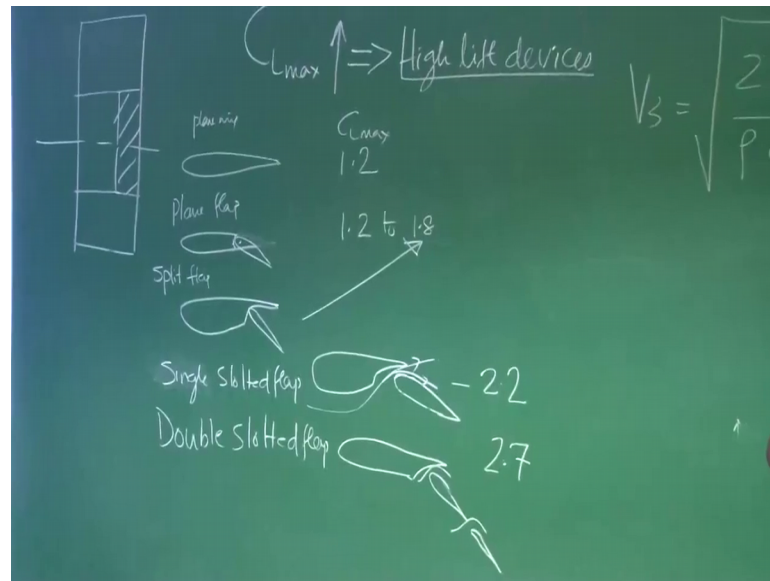 CLmax ↑ => High lift devices
Vs = √ 2 / ρ
plane wing
CLmax
1.2
plane flap
1.2 to 1.8
split flap
Single slotted flap - 2.2
Double slotted flap 2.7